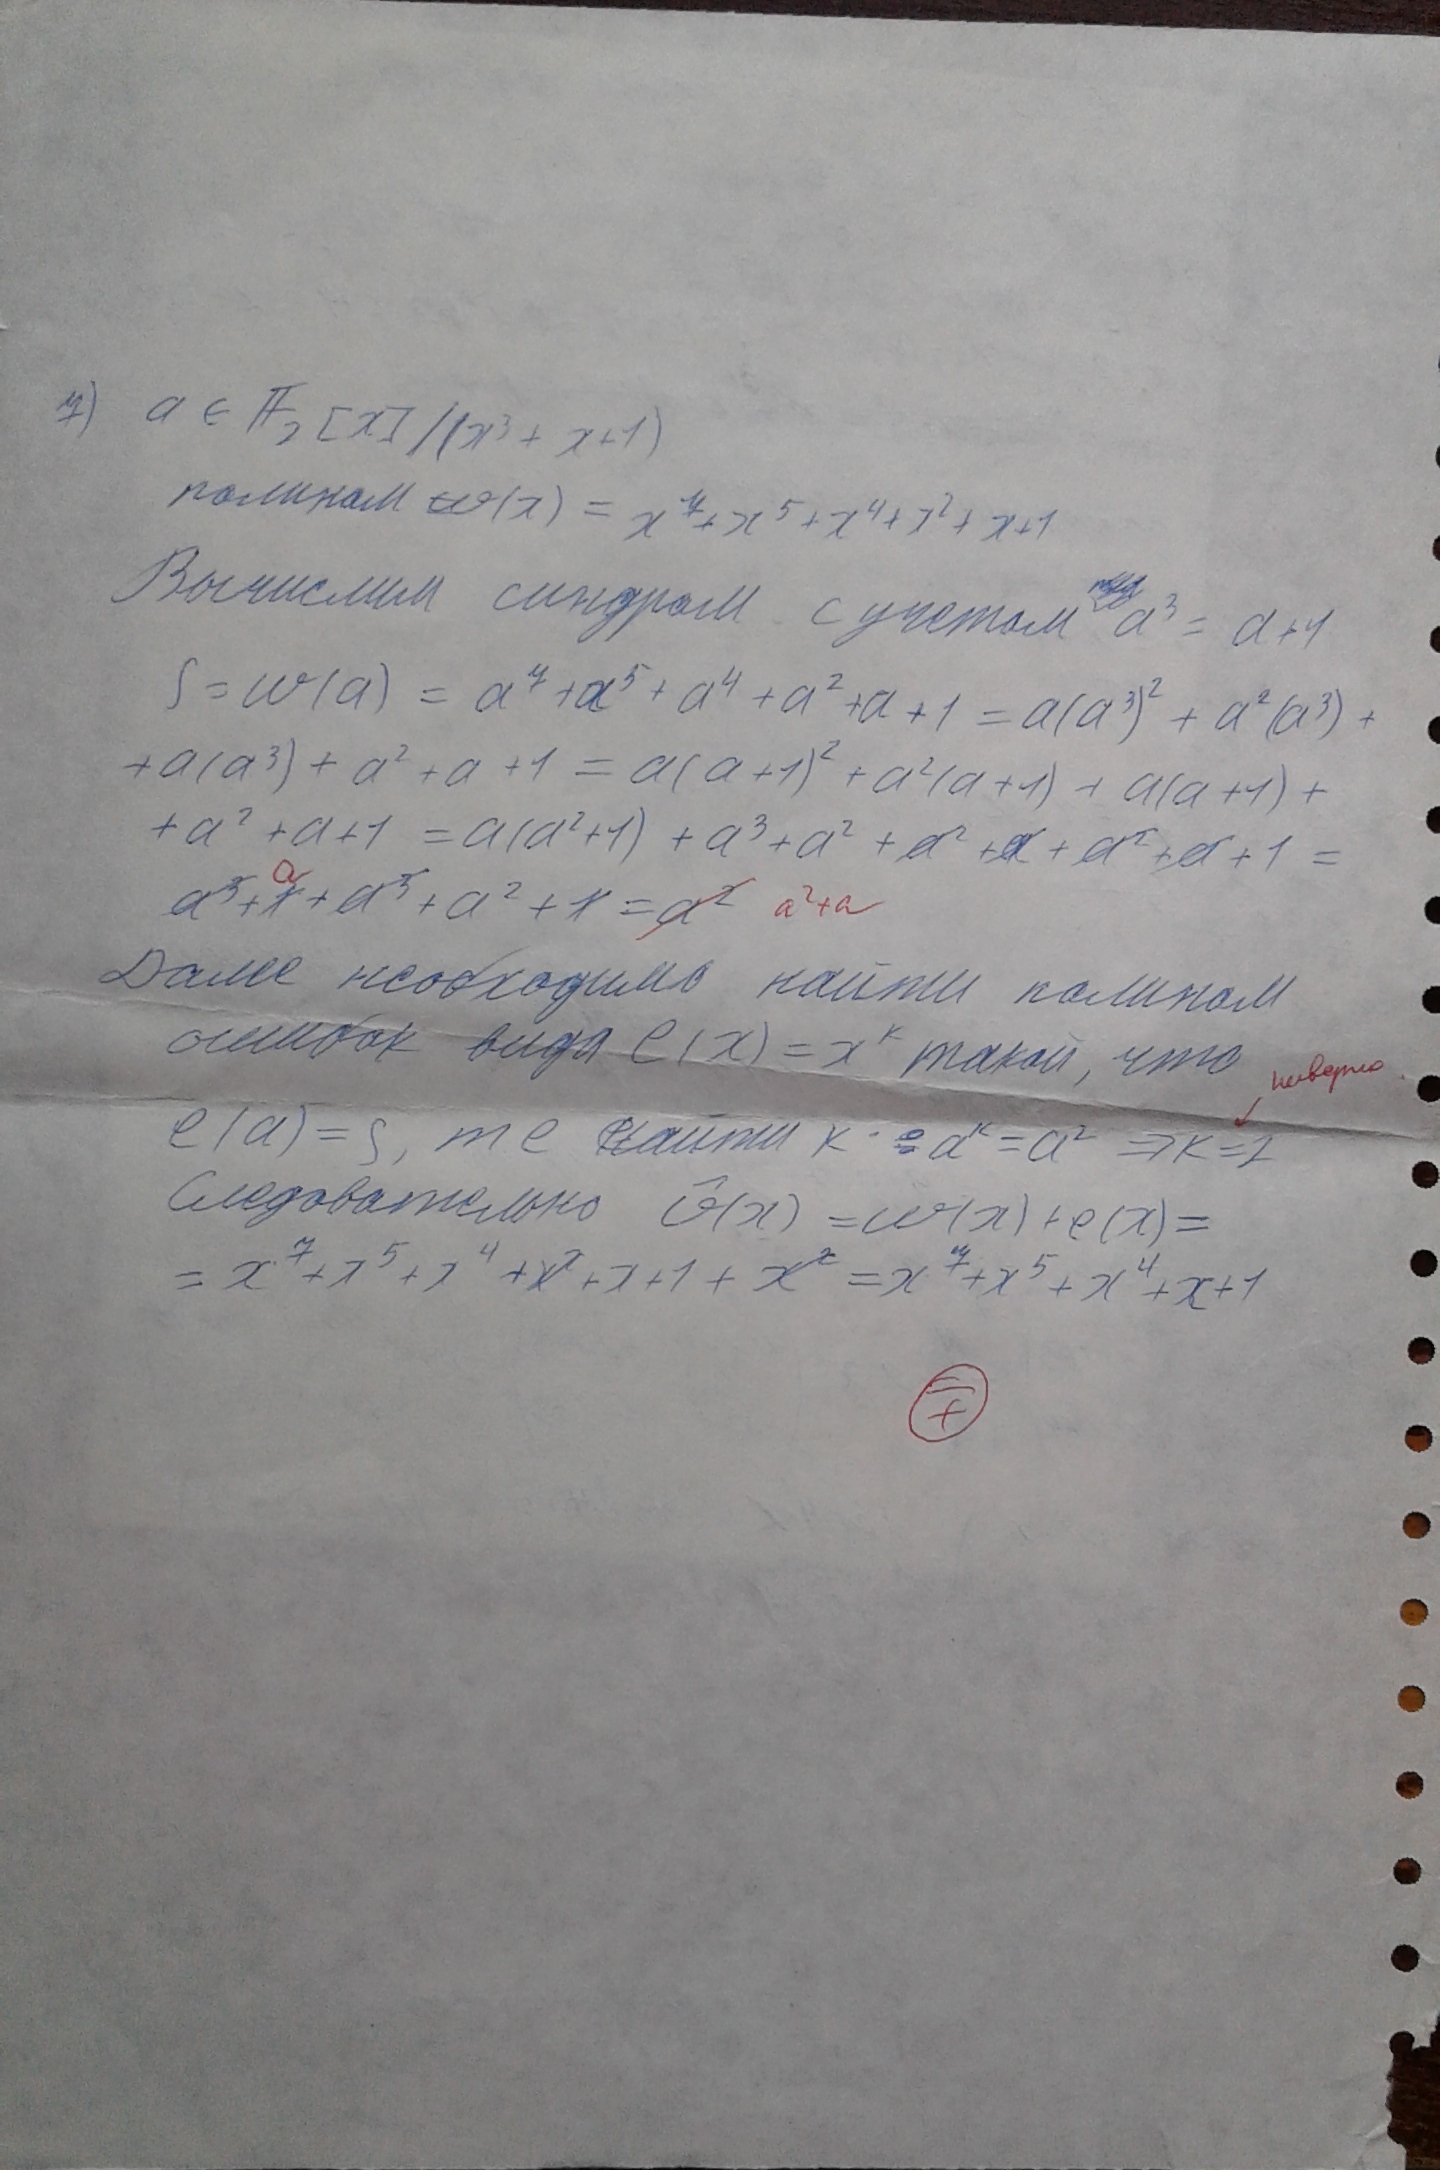 7) a ∈ F₂[x]/(x³ + x+1)
полином w(x) = x⁷+x⁵+x⁴+x²+x+1
Вычислим синдром с учетом a³ = a+1
S = w(a) = a⁷+a⁵+a⁴+a²+a+1 = a(a³)² + a²(a³) +
+a(a³) + a²+a+1 = a(a+1)² + a²(a+1) + a(a+1) +
+a²+a+1 = a(a²+1) + a³+a² + a²+a+a²+a+1 =
a
a³+1+a³+a²+1 = a² a²+a
Далее необходимо найти полином
ошибок вида e(x) = xᵏ такой, что
неверно
e(a) = S, т е найти k : aᵏ = a² ⇒ k=2
Следовательно v̂(x) = w(x)+e(x) =
= x⁷+x⁵+x⁴+x²+x+1+x² = x⁷+x⁵+x⁴+x+1
∓